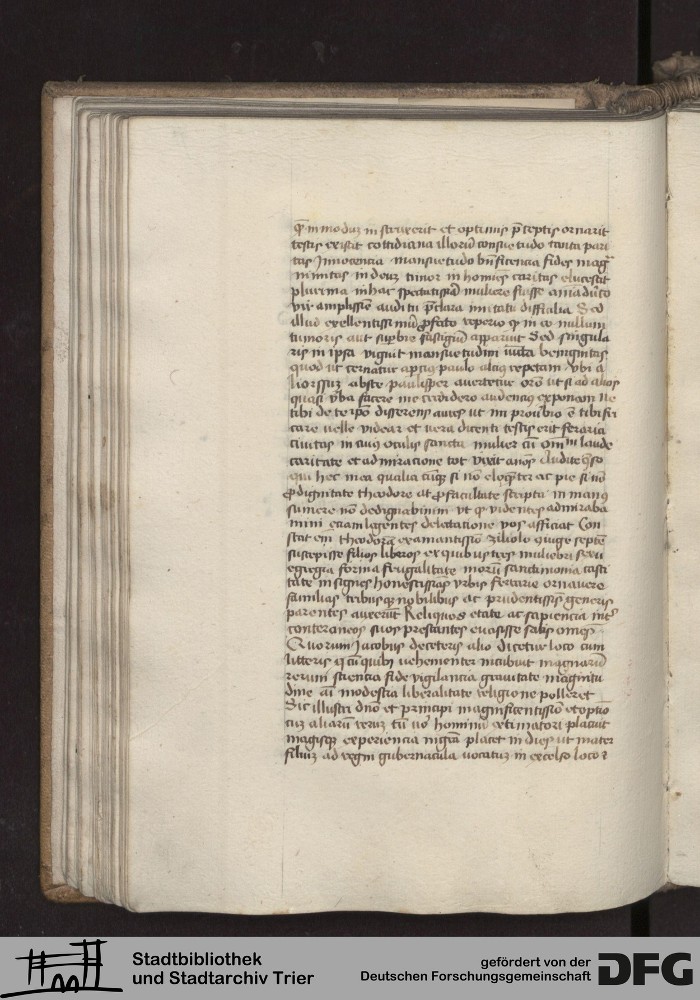 modum instruxerit et optimis preceptis ornarit
testis existit cottidiana illorum consuetudo tanta pari
tas Innocencia mansuetudo beneficencia fides mag
nimitas in deum timor in homines caritas elucescit
plurima in hac spectatissima muliere fuisse
viri amplissime auditu preclara imitatu difficilia Sed
illud exellentissimum profecto reperio in eo nullum
tumoris aut superbie fastigium apparuit Sed singula
ris in ipsa viguit mansuetudini benignitas
quod ut cernatur apcius paulo alcius repetam Vbi a
liorssum abs te paulisper avertetur ut si ad alios
quasi verba facere me credidero audencius exponam Ne
tibi de te ipso disserens aures ut in proverbio est tibi fri
care velle videar et vera dicenti testis erit feraria
Civitas in cuius oculis sancta mulier cum omnium laude
caritate et admiracione tot vixit annos Audite queso
qui hec mea qualiacumque si non eleganter ac pie si non
pro dignitate theodore at pro facultate scripta in manus
sumere non dedignabimini ut videntes admiraba
mini eciam legentes delectatione vos afficiat Con
stat enim theodoram ex amantissimo ziliolo septem
suscepisse filios liberos ex quibus tres muliebri sexu
egregia forma frugalitate morum sanctimonia casti
tate insignes honestissimas vrbis ferrarie ornavere
familias tribusque nobilibus ac prudentissimis generis
parentes auxerunt Reliquos etate ac sapiencia inter
conterraneos suos prestantes evasisse satis omnes
Quorum Jacobus de ceteris alio dicetur loco cum
litteris quibus vehementer incubuit magnarum
rerum sciencia fide vigilancia gravitate magnitu
dine animi modestia liberalitate religione polleret
Sic illustri domino et principi magnificentissimo et optio
cum aliarum rerum tum vero hominum extimatori placuit
magisque experiencia placet in dies ut mater
filium ad regni gubernacula vocatum in excelso loco
Stadtbibliothek
und Stadtarchiv Trier
gefördert von der
Deutschen Forschungsgemeinschaft
DFG